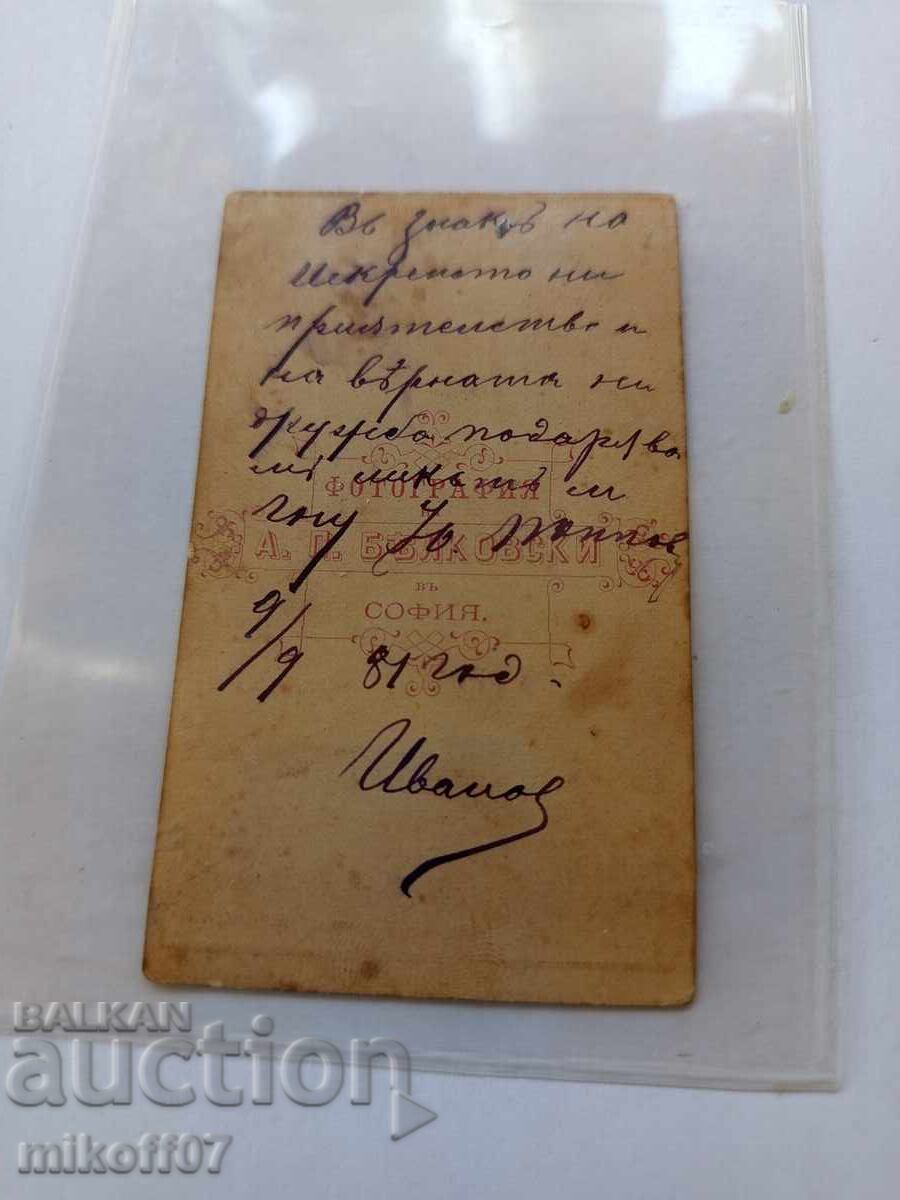 Въ знакъ на
Искренето ни
приятелство и
на вѣрната ни
дружба подарява
ликътъ си
ФОТОГРАФИЯ
Гну Ю.
А. П. БѢЛКОВСКИ
въ
СОФИЯ.
9/9 81 год.
Иванов
BALKAN
auction
mikoff07